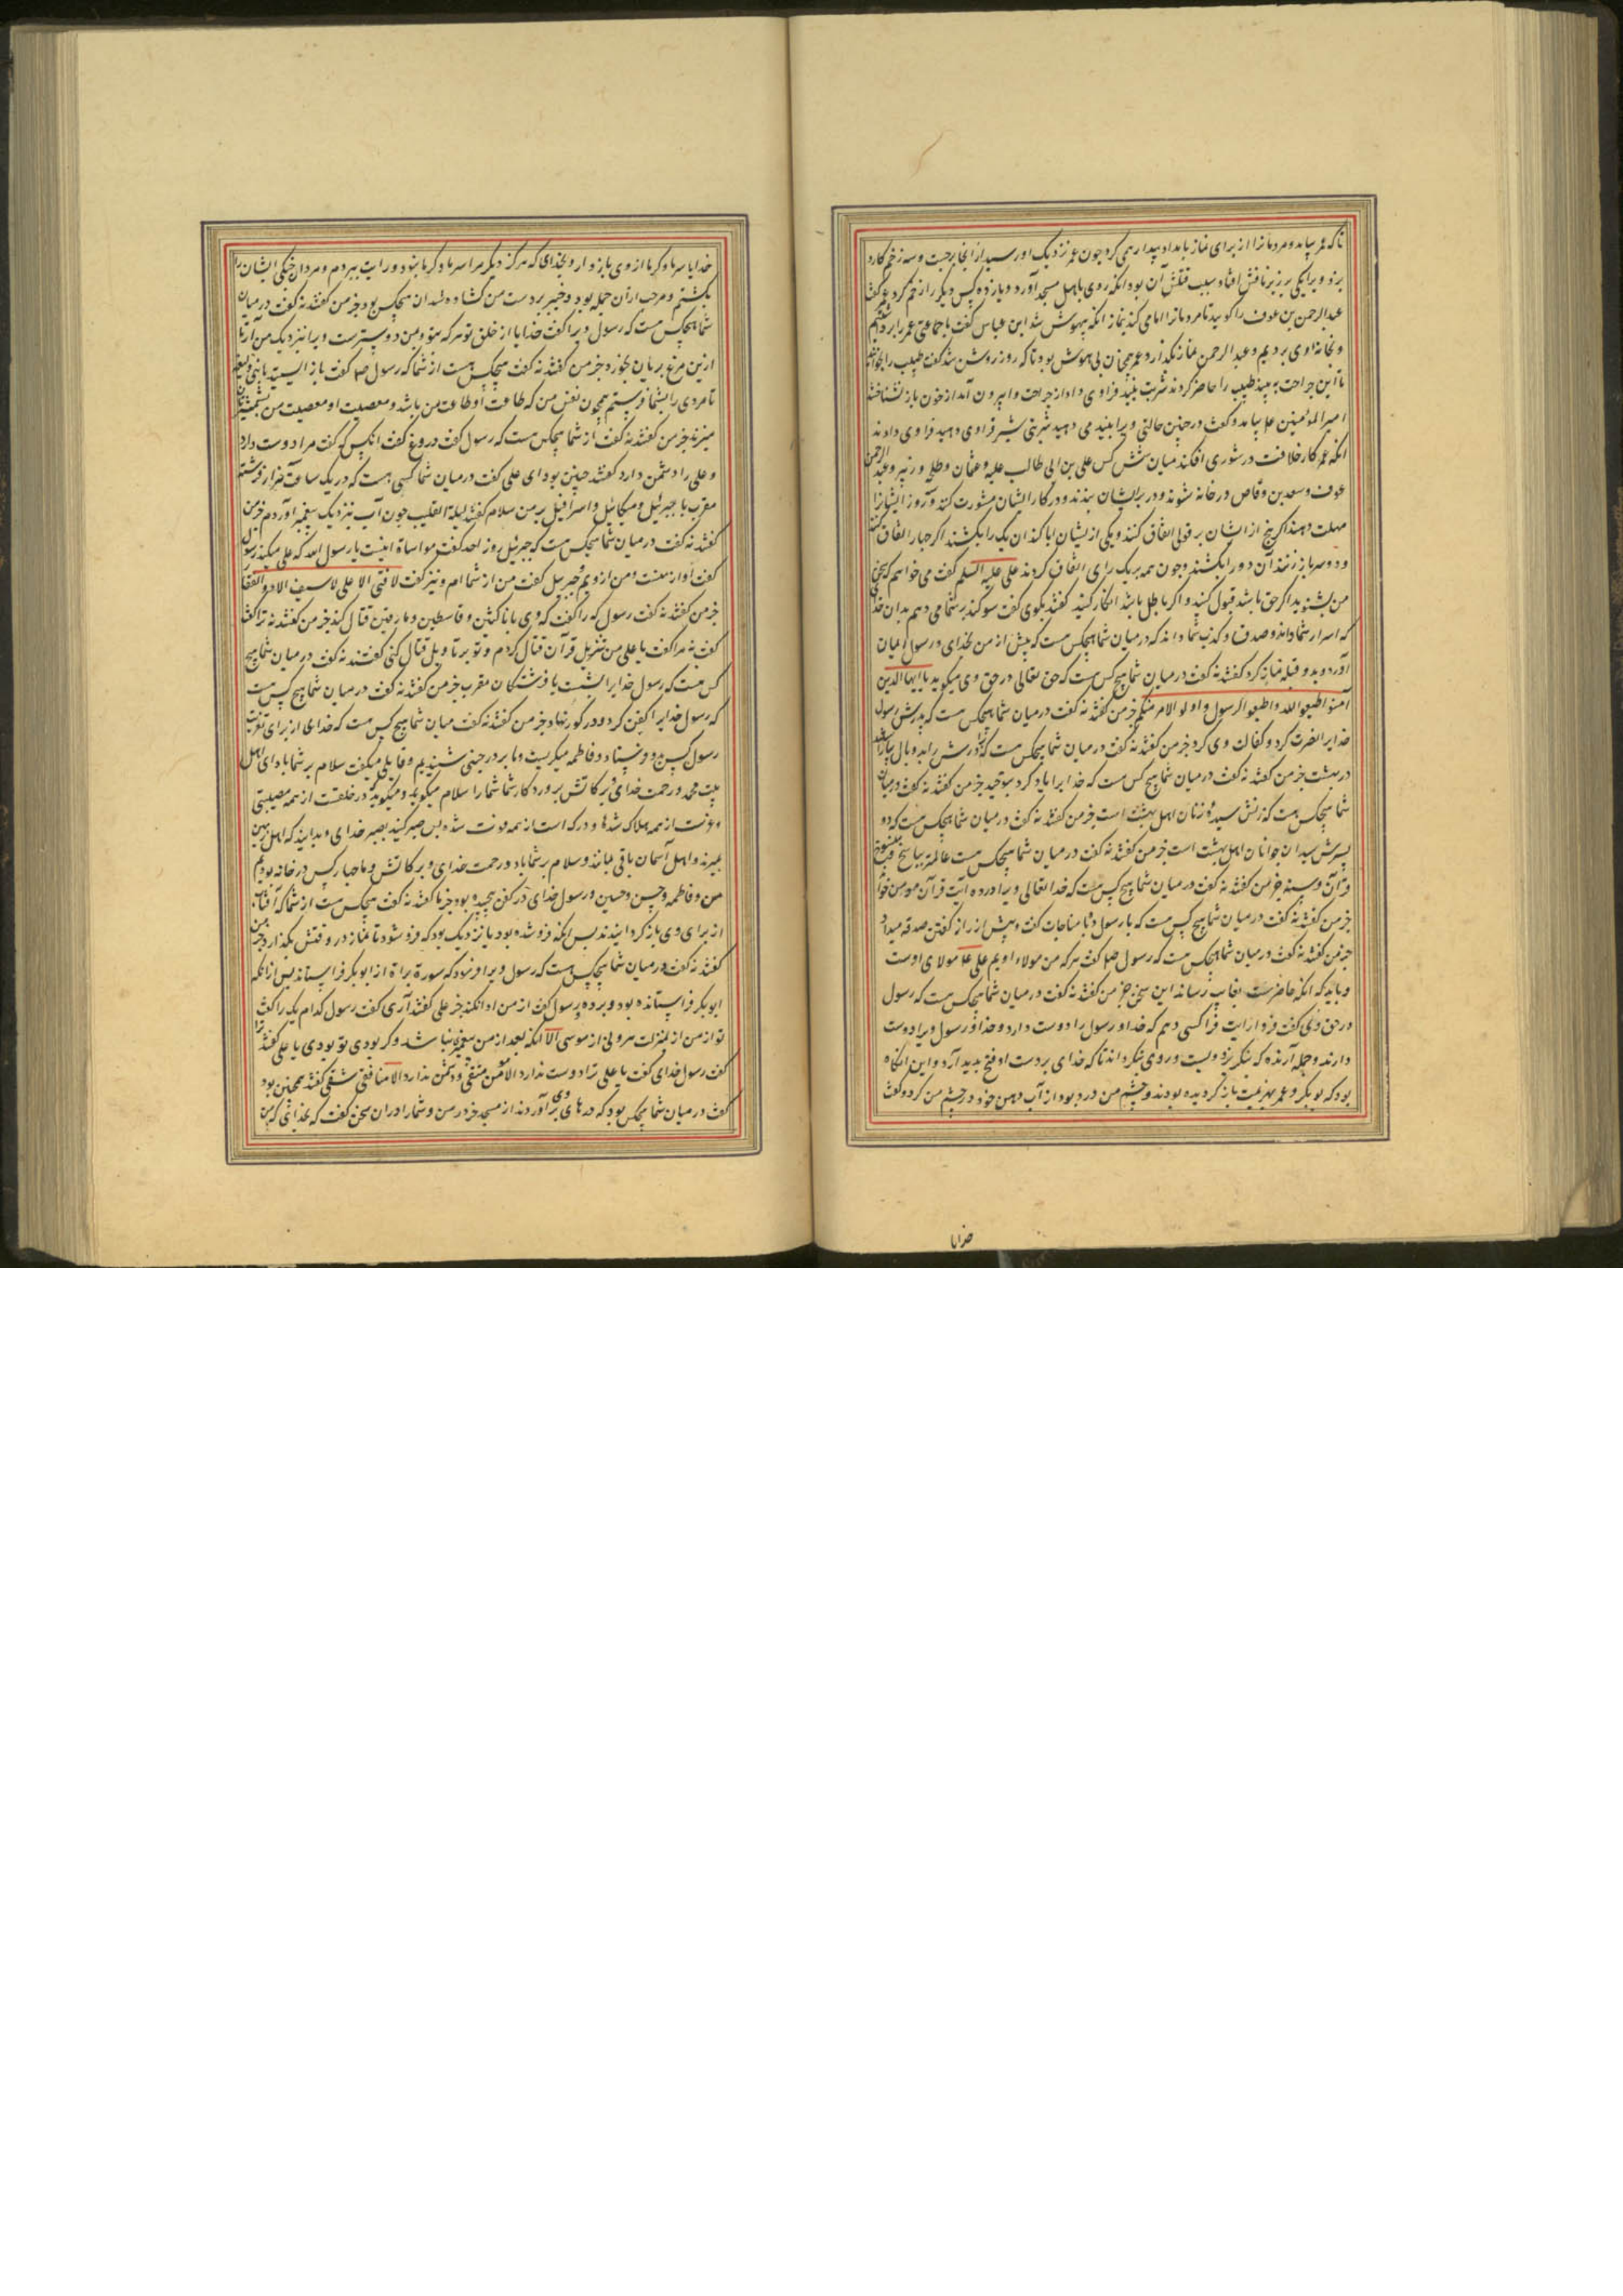 تا که عمر بیامد و مردمانرا از برای نماز بامداد بیدار همی کرد چون عمر نزدیک او رسید از آنجا برجست و سه زخم کارد
بزد ویرا یکی بر زیر نافش افتاد و سبب قتلش آن بود انکه روی باهل مسجد آورد و یازده کس دیگر را زخم کرد عمر گفت
عبدالرحمن بن عوف را گویید تا مردمانرا امامی کند بنماز انکه بیهوش شد ابن عباس گفت با جماعتی عمر را برداشتیم
و بخانه اوی بردیم و عبدالرحمن نماز بگذارد عمر همچنان بی هوش بود تا که روز روشن شد گفت طبیب را بخوانید
تا این جراحت به بیند طبیب را حاضر کردند شربت فرا وی داد از جراحت وا بیرون آمد از خون باز نشناختند
امیرالمؤمنین ع بیامد و گفت در چنین حالتی ویرا می دهید شربتی شیر فرا وی دهید فرا وی دادند
انکه عمر کار خلافت در شوری افکند میان شش کس علی بن ابی طالب علیه و عثمان و طلحه و زبیر و عبدالرحمن
عوف و سعد بن وقاص در خانه شوند و در بر ایشان ببندند و در کار ایشان مشورت کنند و روز ایشانرا
مهلت دهند اگر پنج از ایشان بر قولی اتفاق کنند و یکی از یشان ابا کند آن یک را بکشند اگر چهار اتفاق کنند
و دو سر باز زنند آن دو را بکشند و چون همه بر یک رای اتفاق کردند علی علیه السلم گفت می خواهم که سخن
من بشنوید اگر حق باشد قبول کنید و اگر باطل باشد انکار کنید گفتند بگوی گفت سوگند بر شما می دهم بدان خدای
که اسرار شما داند و صدق و کذب شما داند که در میان شما هیچکس هست که پیش از من بخدای و رسول ایمان
آورد و بدو قبله نماز کرد گفتند نه گفت در میان شما هیچ کس هست که حق تعالی در حق وی میگوید یا ایها الذین
آمنوا اطیعوا الله و اطیعوا الرسول و اولو الامر منکم جز من گفتند نه گفت در میان شما هیچکس هست که پدرش رسول
خدایرا نصرت کرد و کفالت وی کرد جز من گفتند نه گفت در میان شما هیچکس هست که برادرش را بدو بال بیاراستند
در بهشت جز من گفتند نه گفت در میان شما هیچ کس هست که خدا یرا یاد کرد بتوحید جز من گفتند نه گفت در میان
شما هیچکس هست که زنش سیدهٔ زنان اهل بهشت است جز من گفتند نه گفت در میان شما هیچکس هست که دو
پسرش سیدان جوانان اهل بهشت است جز من گفتند نه گفت در میان شما هیچکس هست عالمتر بناسخ و منسوخ
قرآن و سنه جز من گفتند نه گفت در میان شما هیچ کس هست که خدا تعالی ویرا در ده آیت قرآن مومن خواند
جز من گفتند نه گفت در میان شما هیچ کس هست که با رسول مناجات گفت و پیش از راز گفتن صدقه میداد
جز من گفتند نه گفت در میان شما هیچکس هست که رسول ص گفت هر که من مولاء اویم علی ع مولای اوست
و باید که انکه حاضرست بغایب رساند این سخن جز من گفتند نه گفت در میان شما هیچکس هست که رسول
در حق وی گفت فردا رایت فرا کسی دهم که خدا و رسول را دوست دارد و خدا و رسول ویرا دوست
دارند و حمله آرنده که بنگریزد و پشت و روی بنگرداند تا که خدای بر دست او فتح پدید آرد و این انگاه
بود که بوبکر و عمر بهزیمت باز گردیده بودند و چشم من درد بود از آب دهن خود در چشم من کرد و گفت
خدایا
خدایا سرما و گرما از وی باز دار و بخدای که هرگز دیگر مرا سرما و گرما نبود و رایت ببردم و مردان جنگی ایشان را
بکشتم و مرحب از آن جمله بود و خیبر بر دست من گشاده شد آن هیچکس بود جز من گفتند نه گفت در میان
شما هیچکس هست که رسول ویرا گفت خدایا از خلق تو هر که بتو و بمن دوسترست ویرا بنزدیک من آر تا
ازین مرغ بریان بخورد جز من گفتند نه گفت هیچکس هست از شما که رسول ص گفت باز ایستید یا بنی ولیعه
تا مردی را بشما فرستم همچون نفس من که طاعت او طاعت من باشد و معصیت او معصیت من بشمشیرتان
میزند جز من گفتند نه گفت از شما هیچکس هست که رسول گفت دروغ گفت انکس که گفت مرا دوست دارد
و علی را دشمن دارد گفتند چنین بود ای علی گفت در میان شما کسی هست که در یک ساعت هزار فرشته
مقرب با جبرئیل و میکائیل و اسرافیل بر من سلام گفتند لیلة القلیب چون آب بنزدیک پیغمبر آوردم جز من
گفتند نه گفت در میان شما هیچکس هست که جبرئیل روز احد گفت مواساة اینست یا رسول الله که علی میکند رسول
گفت او از منست و من از ویم جبرئیل گفت من از شماام و نیز گفت لا فتی الا علی لا سیف الا ذو الفقار
جز من گفتند نه گفت رسول که را گفت که وی با ناکثین و قاسطین و مارقین قتال کند جز من گفتند نه ترا گفت
گفت نه مرا گفت یا علی من بتنزیل قرآن قتال کردم و تو بر تاویل قتال کنی گفتند نه گفت در میان شما هیچ
کس هست که رسول خدایرا بشست با فرشتگان مقرب جز من گفتند نه گفت در میان شما هیچ کس هست
که رسول خدایرا کفن کرد و در گور نهاد جز من گفتند نه گفت میان شما هیچ کس هست که خدای از برای تعزیت
رسول کس بدو فرستاد و فاطمه میگریست و ما بر در شنیدیم و قایلی میگفت سلام بر شما باد ای اهل
بیت محمد و رحمت خدای و برکاتش پروردکار شما شما را سلام میگوید و میگوید در خلفست از همه مصیبتی
و عزت از همه هلاک شدها و درکه است از همه فوت شده پس صبر کنید بصبر خدای و بدانید که اهل زمین
بمیرند و اهل آسمان باقی نمانند و سلام بر شما باد و رحمت خدای و برکاتش و ما چهار کس در خانه بودیم
من و فاطمه و حسن و حسین و رسول خدای در کفن پیچیده بود جز ما گفتند نه گفت هیچکس هست از شما که آفتاب
از برای وی باز گردانیدند پس انکه فرو شده بود یا نزدیک بود که فرو شود تا نماز در وقتش بگذارد جز من
گفتند نه گفت در میان شما هیچکس هست که رسول ویرا فرمود که سورة براة از ابوبکر فراستاند پس از انکه
ابوبکر فراستانده بود و برده رسول گفت از من ادا نکند جز علی گفتند آری گفت رسول کدام یک را گفت
تو از من از بمنزلت هرونی از موسی الا انکه بعد از من پیغمبر نباشد و گر بودی تو بودی یا علی گفتند ترا
گفت رسول خدای گفت یا علی ترا دوست ندارد الا مومن متقی و دشمن ندارد الا منافقی شقی گفتند همچنین بود
گفت در میان شما هیچکس بود که درهای وی برآوردند از مسجد جز در من و شما را در آن سخن گفت که بخدائی که من